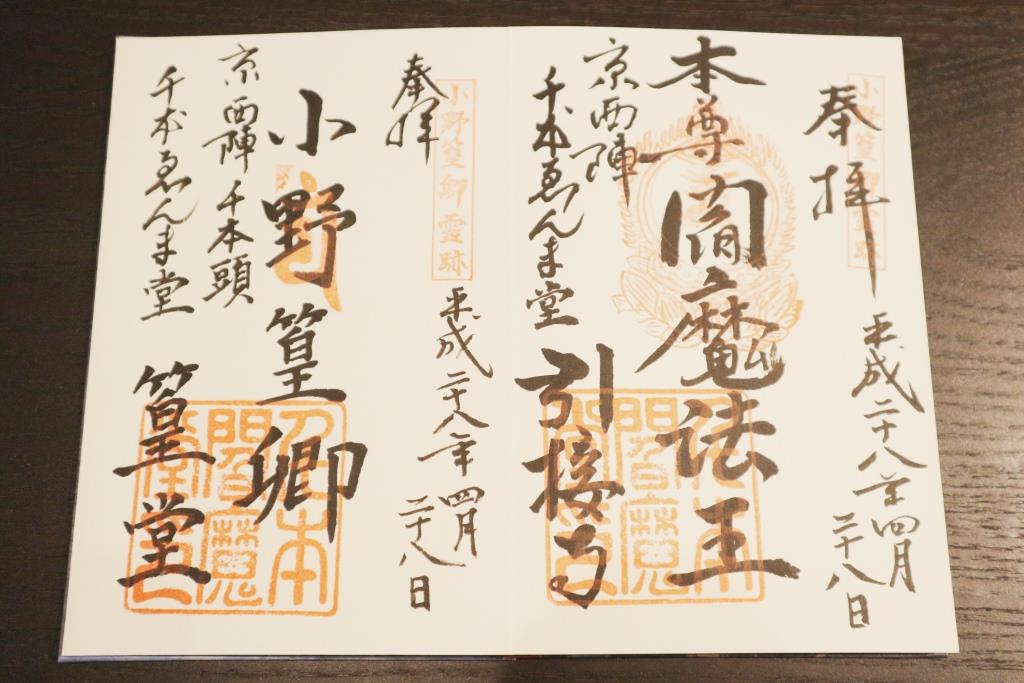 奉拝
小野篁卿霊跡
平成二十八年四月
二十八日
本尊閻魔法王
京西陣
千本ゑんま堂
引接寺
奉拝
小野篁卿霊跡
平成二十八年四月
二十八日
小野篁卿
京西陣千本頭
千本ゑんま堂
篁堂